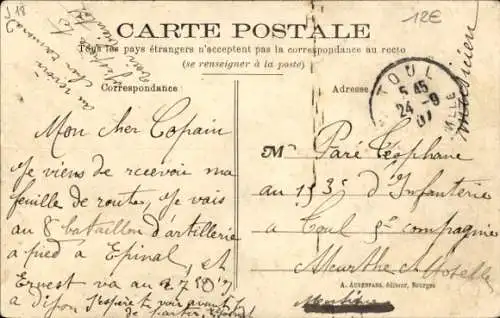 J 18
12E
CARTE POSTALE
Tous les pays étrangers n'acceptent pas la correspondance au recto
(se renseigner à la poste)
Correspondance
Adresse
Mon cher Copain
Je viens de recevoir ma
feuille de route, Je vais
au 8e bataillon d'artillerie
a pied a Epinal, et
Ernest va au 27
a Dijon J'espère voir avant
de partir
au revoir
ton camarade
TOUL
5 45
24 - 9
07
musicien
Mr Paré Téophane
au 153e d'Infanterie
a Toul 5e compagnie
Meurthe & Moselle
A. AUXENFANS, éditeur, Bourges